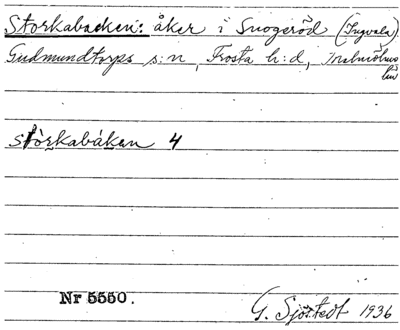 Storkabacken: åker i Snogeröd (Ingvala)
Gudmundtorps s:n, Frosta h:d, Malmöhus
län
störkabákan 4
Nr 5550.
G. Sjöstedt 1936